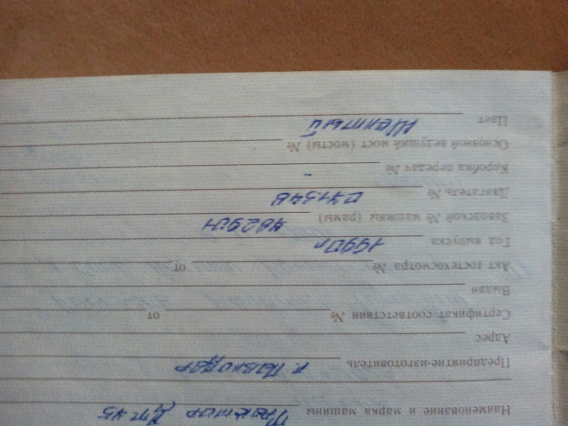 Наименование и марка машины Трактор ДТ-75
Предприятие-изготовитель г. Павлодар
Адрес
Сертификат соответствия № от
Выдан
Акт гостехосмотра № от
Год выпуска 1990г
Заводской № машины (рамы) 482901
Двигатель №
Коробка передач № -
Основной ведущий мост (мосты) №
Цвет Желтый